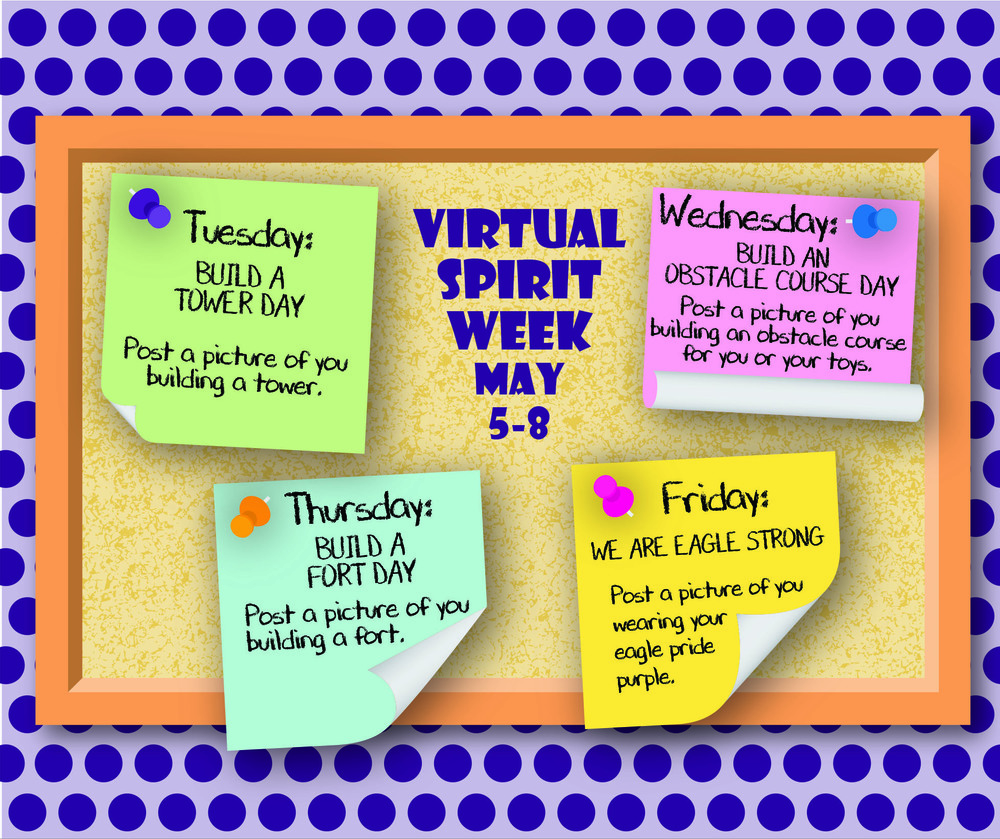 VIRTUAL
SPIRIT
WEEK
MAY
5-8
Tuesday:
BUILD A
TOWER DAY
Post a picture of you
building a tower.
Wednesday:
BUILD AN
OBSTACLE COURSE DAY
Post a picture of you
building an obstacle course
for you or your toys.
Thursday:
BUILD A
FORT DAY
Post a picture of you
building a fort.
Friday:
WE ARE EAGLE STRONG
Post a picture of you
wearing your
eagle pride
purple.